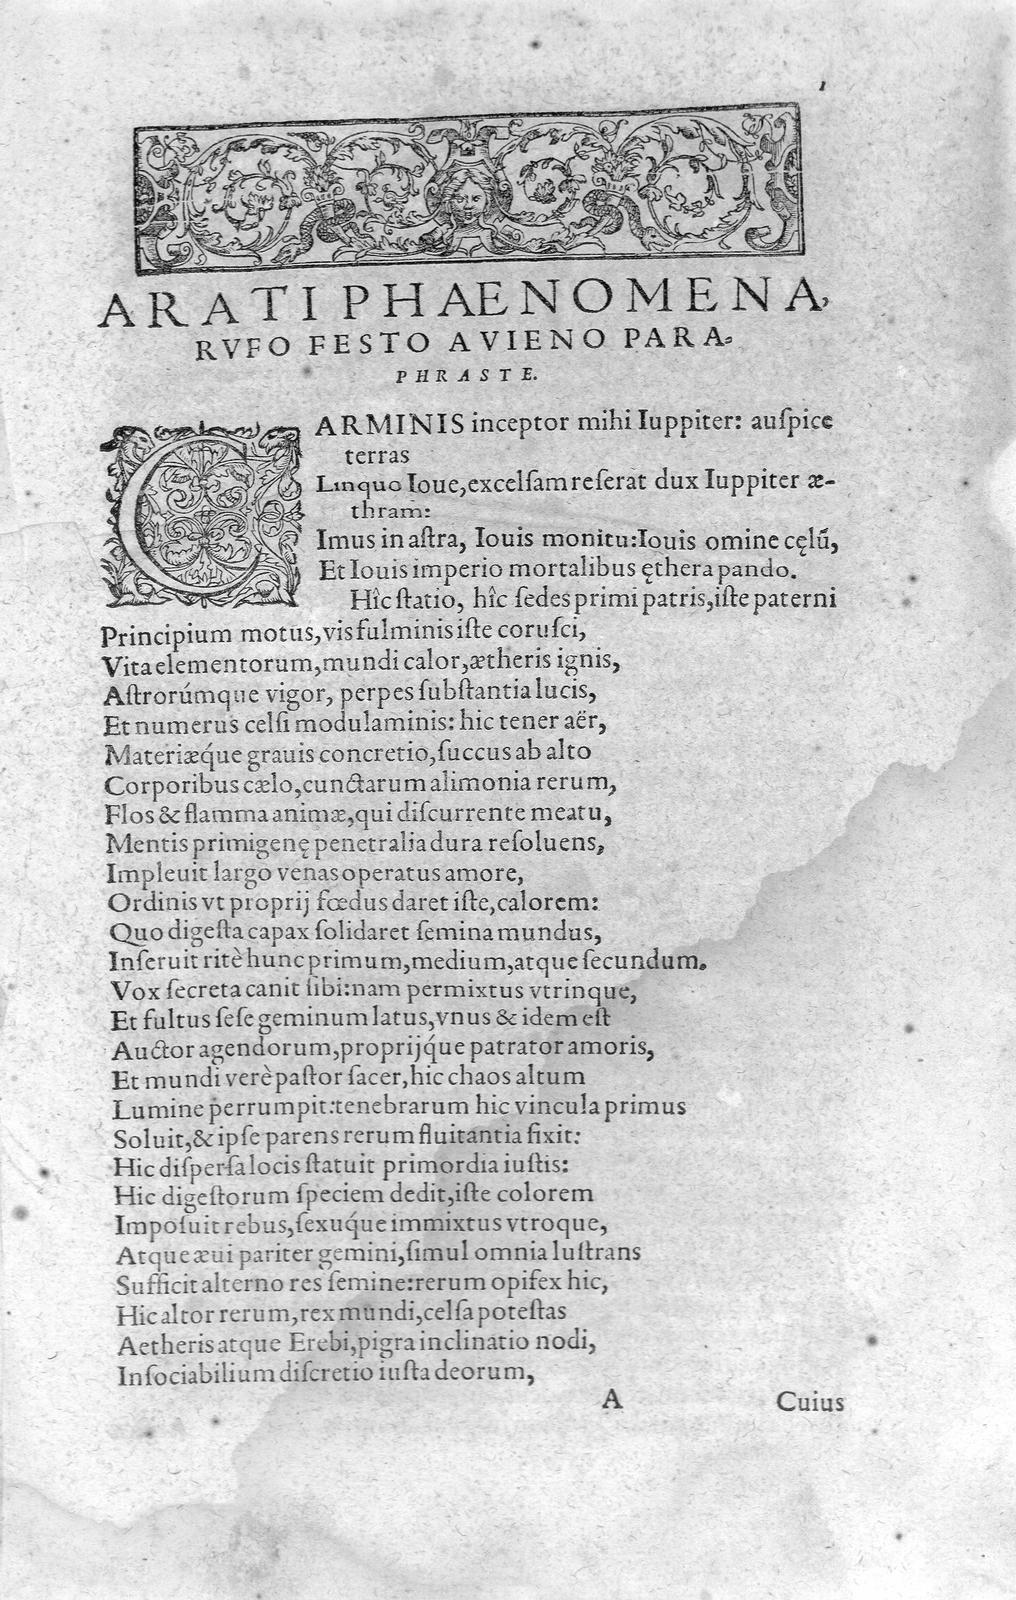 1
ARATI PHAENOMENA,
RVFO FESTO AVIENO PARA-
PHRASTE.
CARMINIS inceptor mihi Iuppiter: auſpice
terras
Linquo Ioue, excelſam reſerat dux Iuppiter æ-
thram:
Imus in aſtra, Iouis monitu: Iouis omine cęlũ,
Et Iouis imperio mortalibus ęthera pando.
Hîc ſtatio, hîc ſedes primi patris, iſte paterni
Principium motus, vis fulminis iſte coruſci,
Vita elementorum, mundi calor, ætheris ignis,
Aſtrorúmque vigor, perpes ſubſtantia lucis,
Et numerus celſi modulaminis: hic tener aër,
Materiæq́ue grauis concretio, ſuccus ab alto
Corporibus cælo, cunctarum alimonia rerum,
Flos & flamma animæ, qui diſcurrente meatu,
Mentis primigenę penetralia dura reſoluens,
Impleuit largo venas operatus amore,
Ordinis vt proprij fœdus daret iſte, calorem:
Quo digeſta capax ſolidaret ſemina mundus,
Inſeruit ritè hunc primum, medium, atque ſecundum.
Vox ſecreta canit ſibi: nam permixtus vtrinque,
Et fultus ſeſe geminum latus, vnus & idem eſt
Auctor agendorum, proprijq́ue patrator amoris,
Et mundi verè paſtor ſacer, hic chaos altum
Lumine perrumpit: tenebrarum hic vincula primus
Soluit, & ipſe parens rerum fluitantia fixit:
Hic diſperſa locis ſtatuit primordia iuſtis:
Hic digeſtorum ſpeciem dedit, iſte colorem
Impoſuit rebus, ſexuq́ue immixtus vtroque,
Atque æui pariter gemini, ſimul omnia luſtrans
Sufficit alterno res ſemine: rerum opifex hic,
Hic altor rerum, rex mundi, celſa poteſtas
Aetheris atque Erebi, pigra inclinatio nodi,
Inſociabilium diſcretio iuſta deorum,
A Cuius